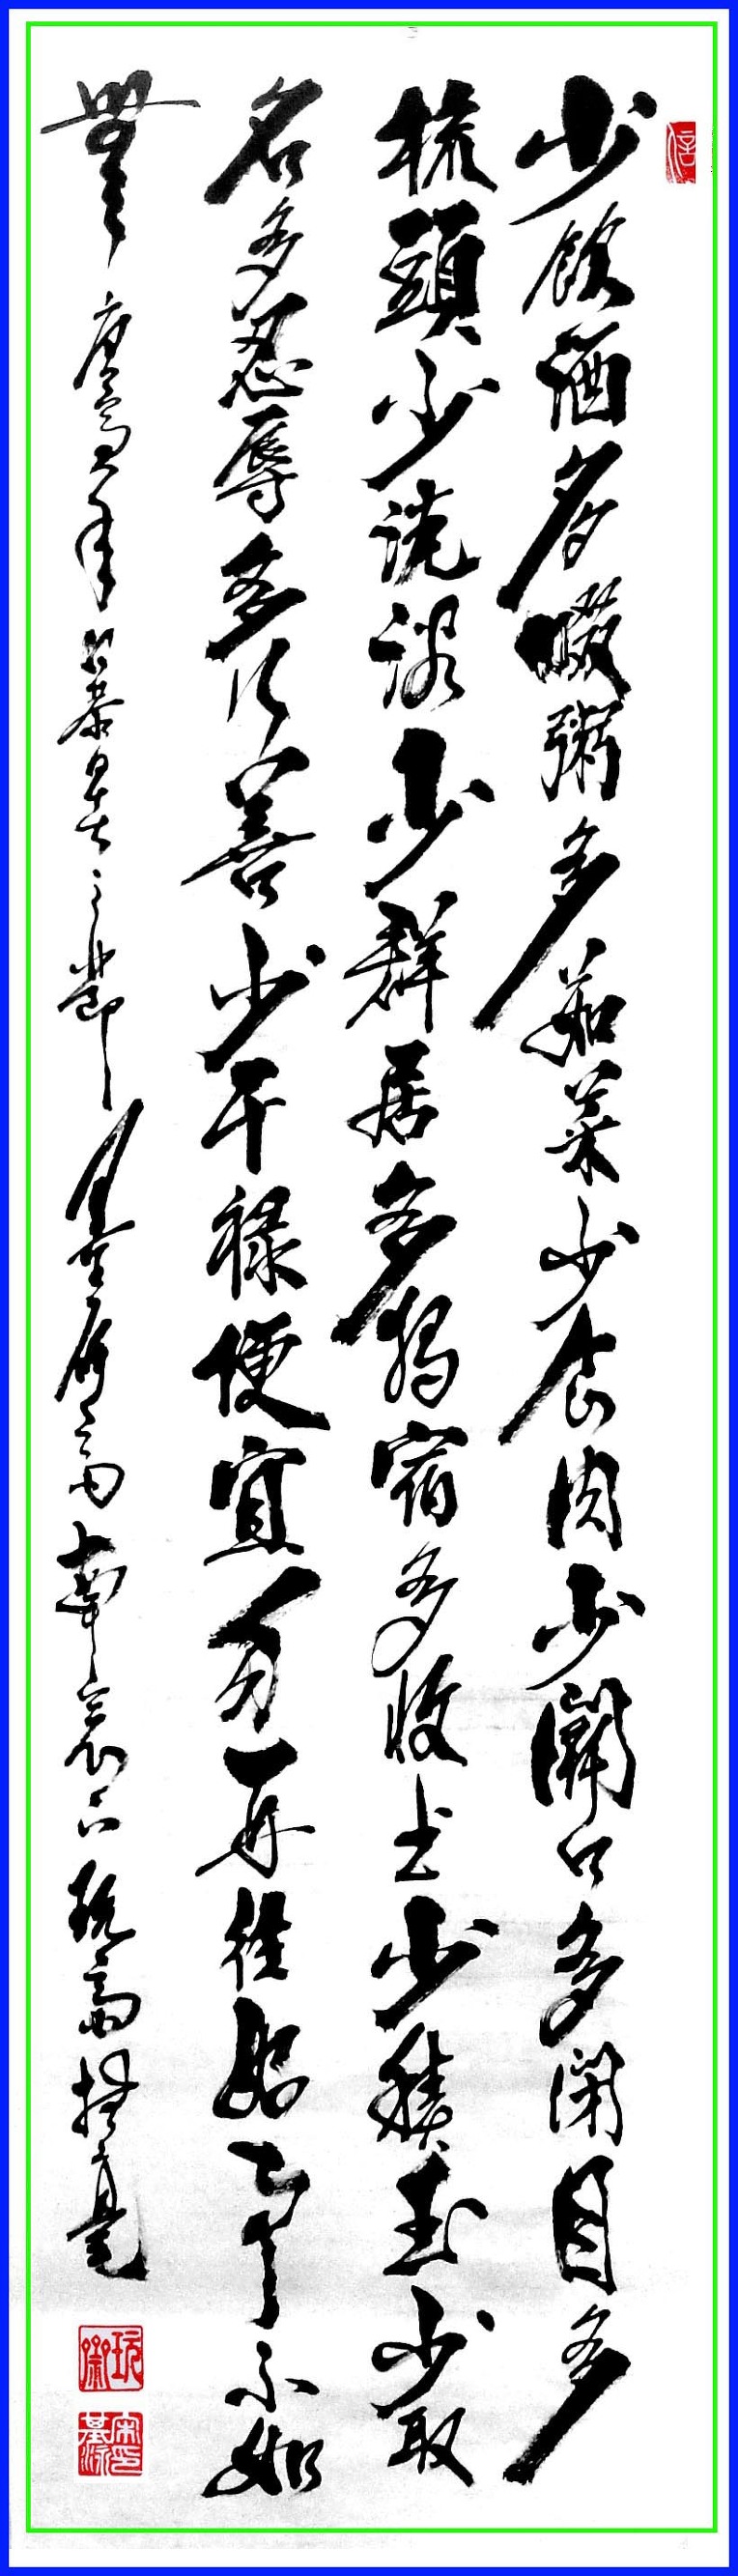 少飲酒多啜粥多茹菜少食肉少開口多閉目多
梳頭少洗浴少群居多獨宿多收書少積玉少取
名多忍辱多行善少干祿便宜勿再往好事不如
無 庚寅年 之節 齋南窗下玩齋揮毫